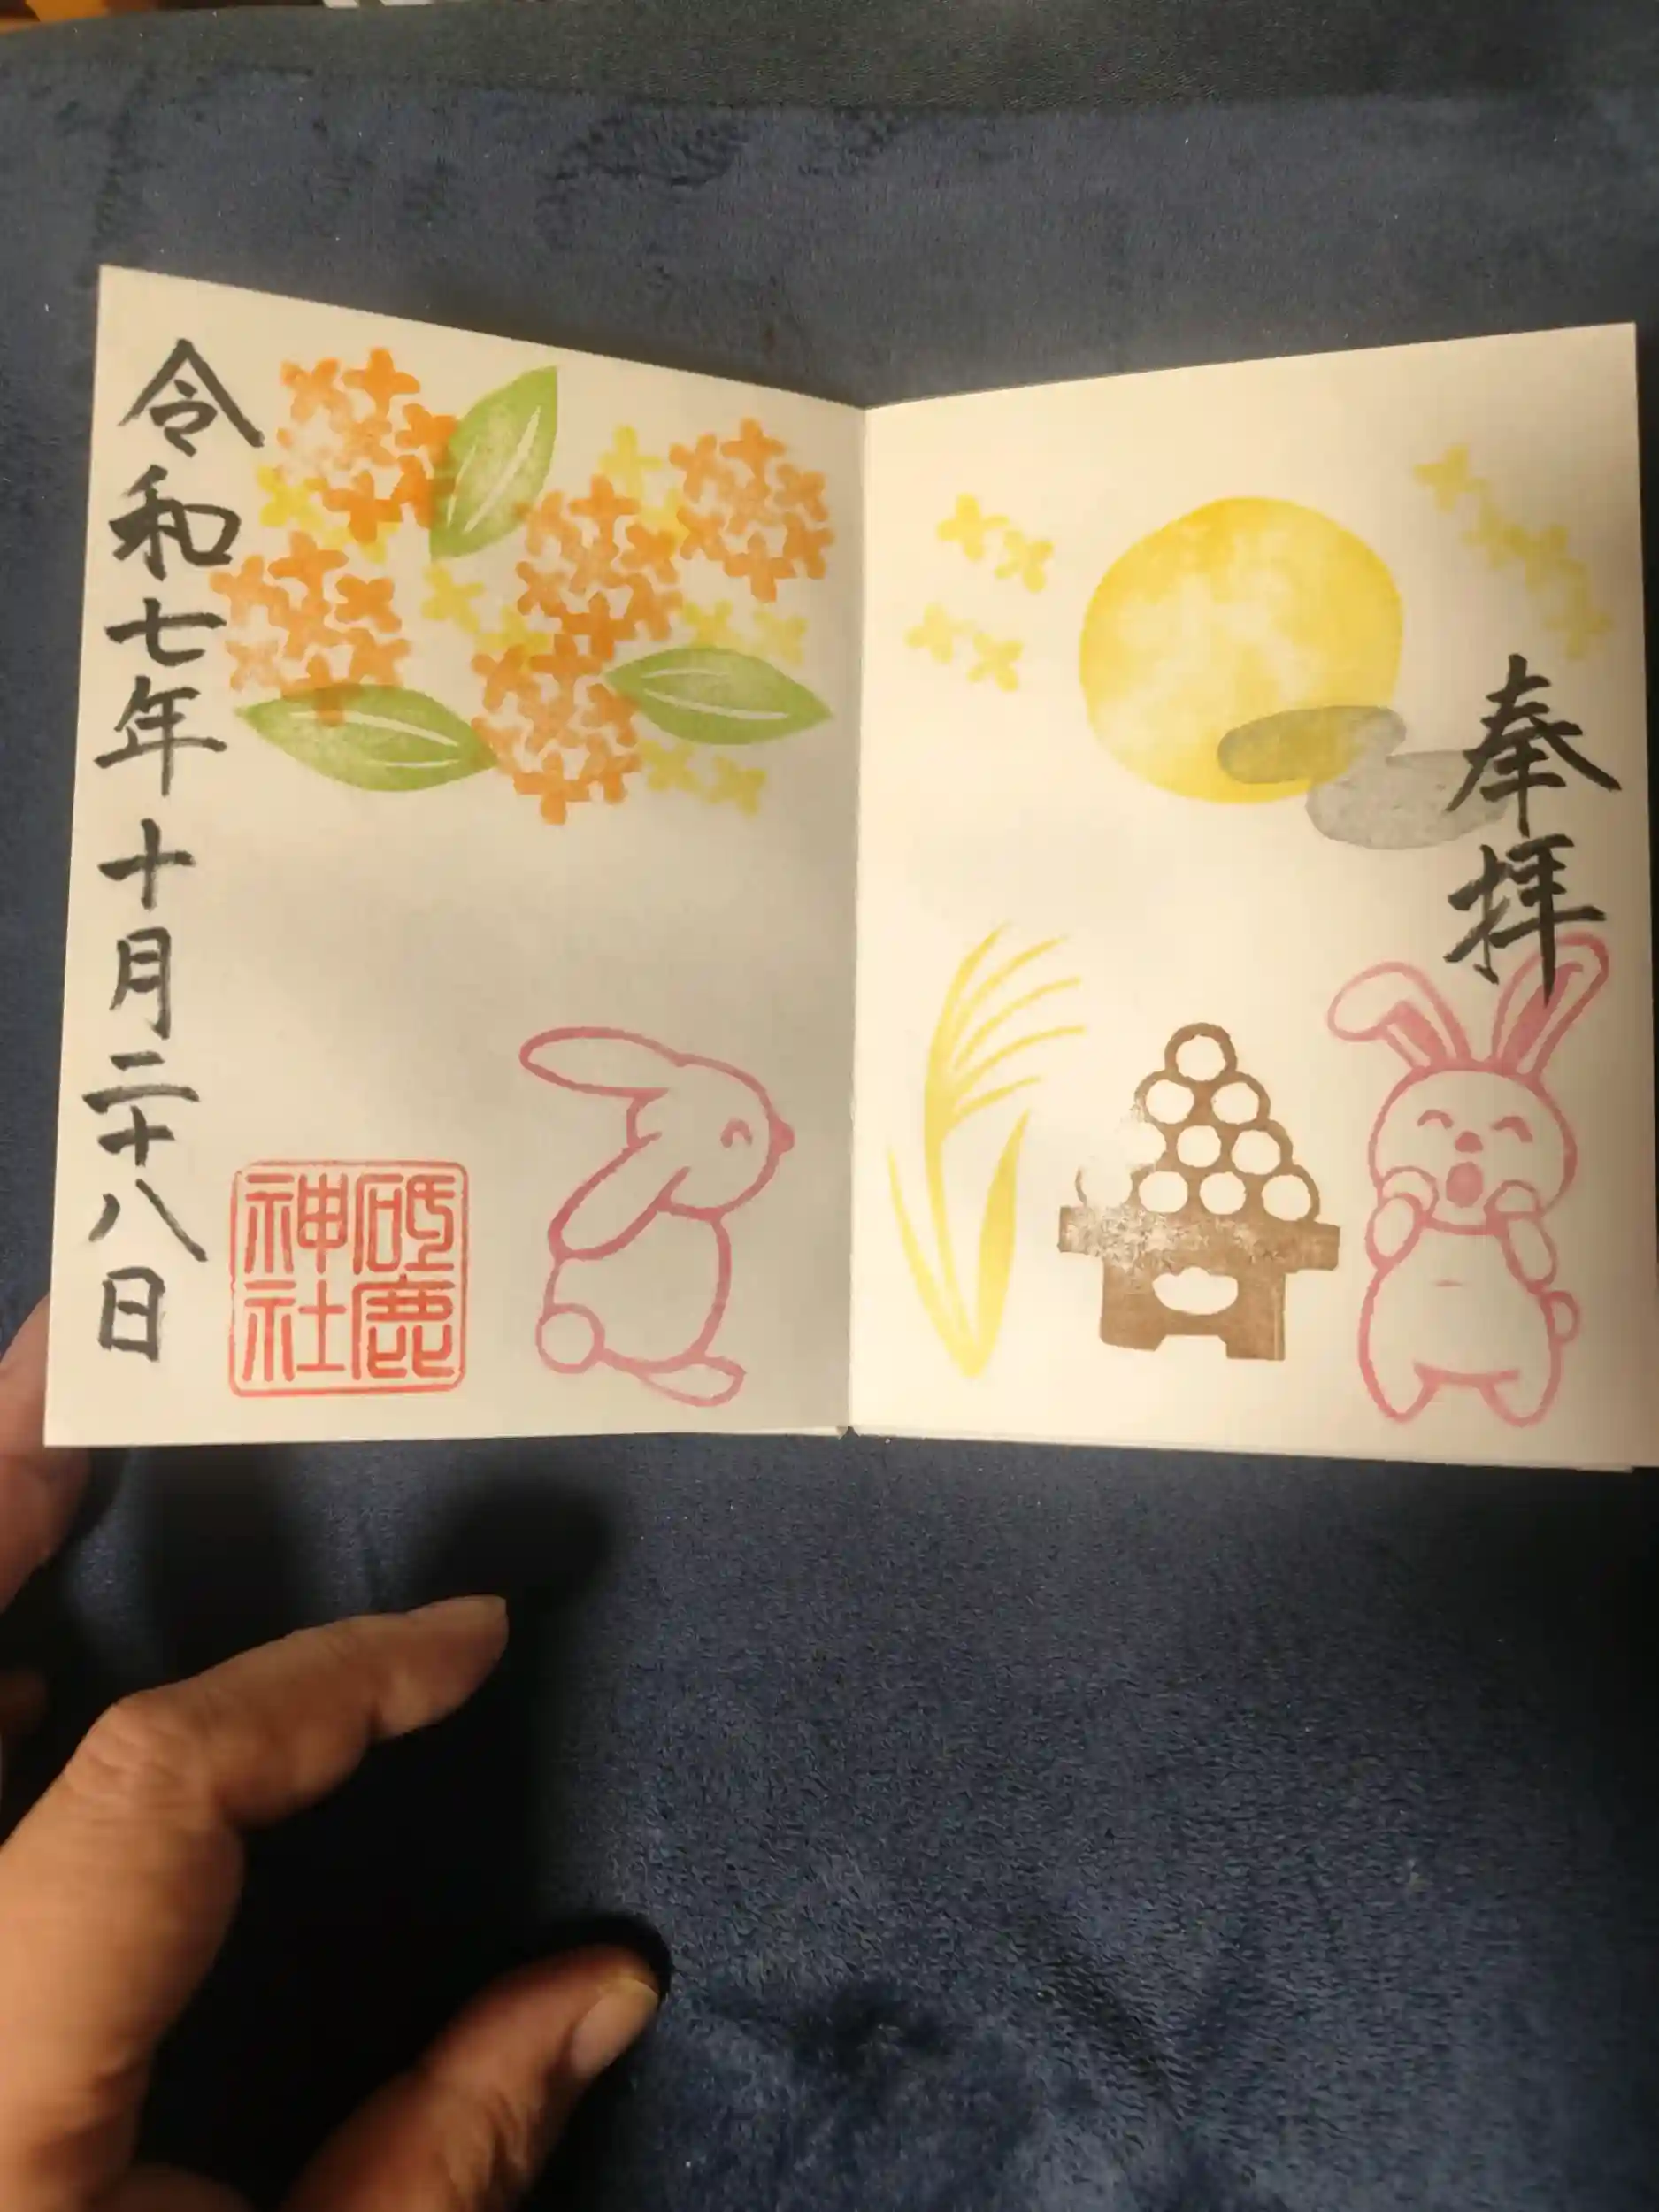 奉拝
砥鹿
神社
令和七年十月二十八日